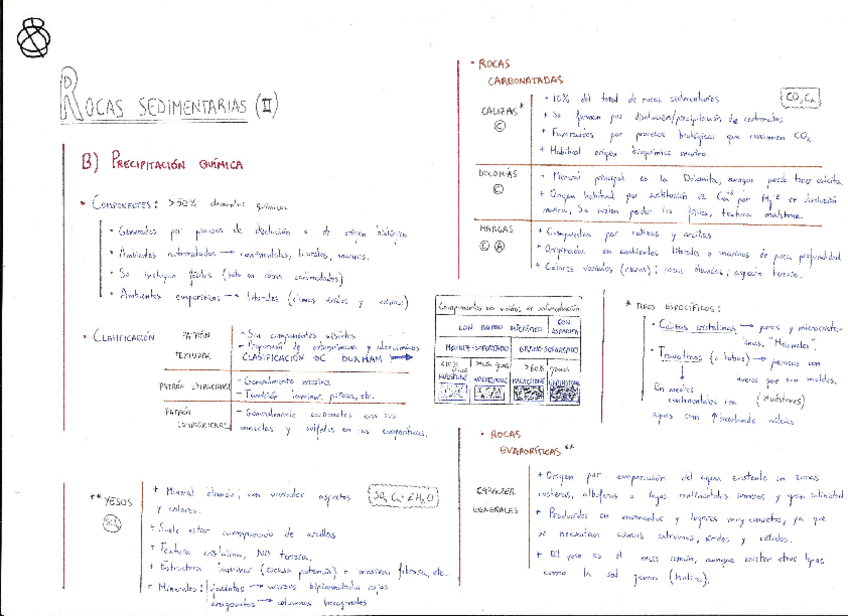 ROCAS SEDIMENTARIAS (II)
B) PRECIPITACIÓN QUÍMICA
• COMPONENTES: >50% químicos
• Generados por procesos de disolución o de origen biológico
• Ambientes carbonatados → continentales, litorales, marinos.
• Se incluyen fósiles (sólo en rocas carbonatadas)
• Ambientes evaporíticos → litorales (climas áridos y cálidos)
• CLASIFICACIÓN
PATRÓN TEXTURAL
- Sin componentes visibles
- Proporción de ortoquímicos y aloquímicos
CLASIFICACIÓN DE DUNHAM →
PATRÓN ESTRUCTURAL
- Generalmente masiva
- También laminar, porosa, etc.
PATRÓN COMPOSICIONAL
- Generalmente carbonatos con sus
mezclas y sulfatos en las evaporíticas.
** YESOS
+ Mineral blando; con variados aspectos
y colores.
SO4Ca·2H2O
+ Suele estar acompañado de arcillas
+ Textura cristalina, NO terrosa.
+ Estructura laminar (escasa potencia) o masiva, fibrosa, etc.
+ Minerales: jacintos → cuarzos bipiramidados rojos
aragonitos → columnas hexagonales
• ROCAS
CARBONATADAS
CALIZAS*
C
+ 10% del total de rocas sedimentarias
CO3Ca
+ Se forman por disolución/precipitación de carbonatos
+ Favorecidos por procesos biológicos que consumen CO2
+ Habitual origen bioquímico marino
DOLOMÍAS
C
+ Mineral principal es la Dolomita, aunque puede tener calcita.
+ Origen habitual por sustitución de Ca+2 por Mg+2 en disolución
marina. Se suelen perder los fósiles, textura
MARGAS
C A
+ Compuestas por calizas y arcillas
+ Originadas en ambientes litorales o marinos de poca profundidad
+ Colores variados (claros); rocas blandas; aspecto terroso.
Componentes no unidos en sedimentación
CON BARRO MICRÍTICO
CON ESPARITA
MATRIZ-SOPORTADO
GRANO-SOPORTADO
>10% granos
>60% granos
MUDSTONE
WACKESTONE
PACKSTONE
GRAINSTONE
* TIPOS ESPECÍFICOS:
• Calizas cristalinas → puras y microcrista-
linas. "Mármoles".
• Travertinos (o tobas) → porosas con
huecos por sus moldes.
En medios
continentales con
aguas con ↑ bicarbonato cálcico
• ROCAS
EVAPORÍTICAS**
CARACTER.
GENERALES
+ Origen por evaporación del agua existente en zonas
costeras, albuferas o lagos continentales someros y gran salinidad
+ Producidas en momentos y lugares muy concretos, ya que
se necesitan climas extremos, áridos y cálidos.
+ El yeso es el más común, aunque existen otros tipos
como la sal gema (Halita).